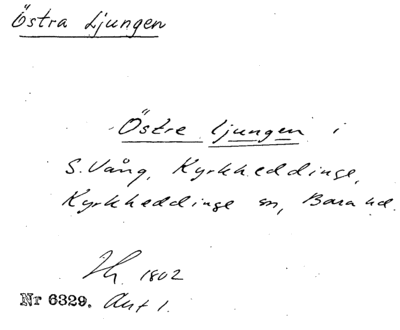 Östra Ljungen
Östre Ljungen i
S. Vång, Kyrkheddinge,
Kyrkheddinge sn, Bara hd.
1802
Nr 6329. Akt 1.